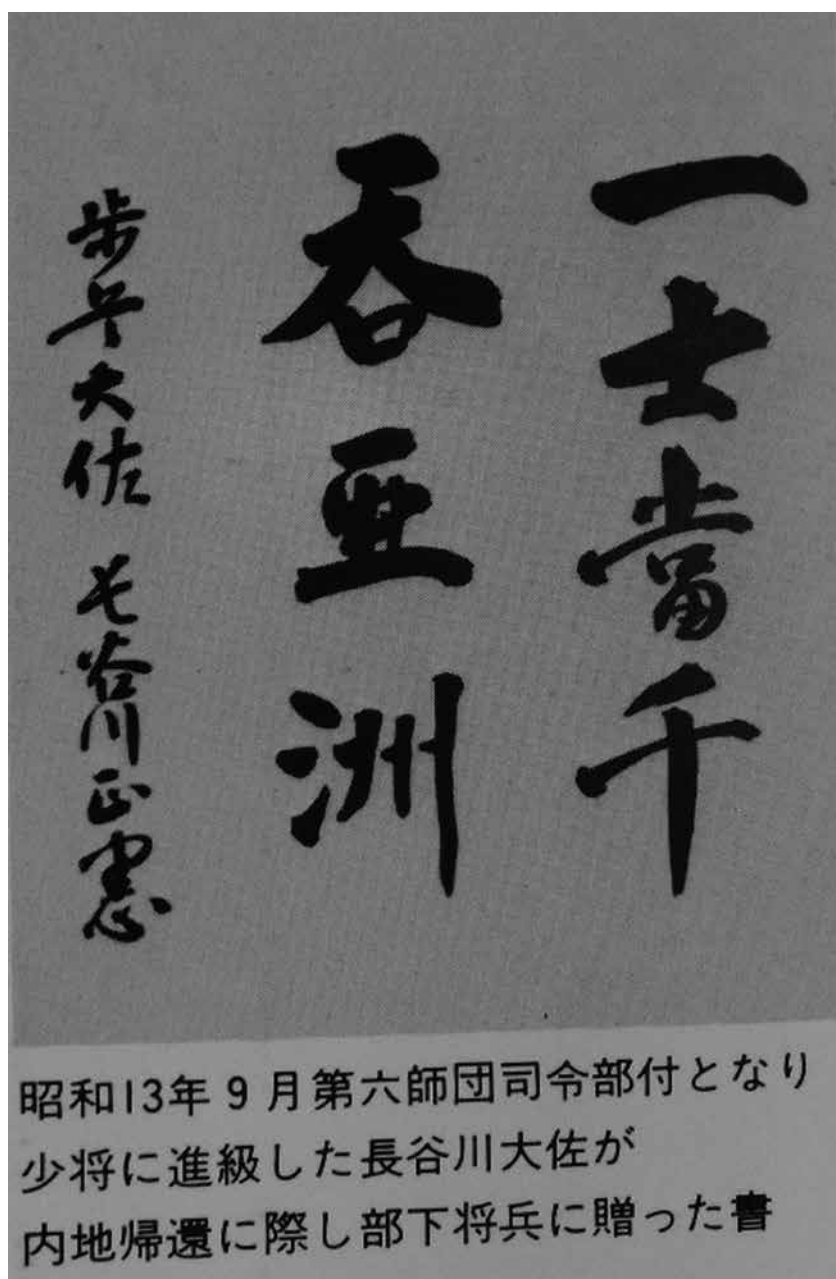 一士當千
呑亜洲
歩兵大佐 長谷川正憲
昭和13年9月第六師団司令部付となり
少将に進級した長谷川大佐が
内地帰還に際し部下将兵に贈った書